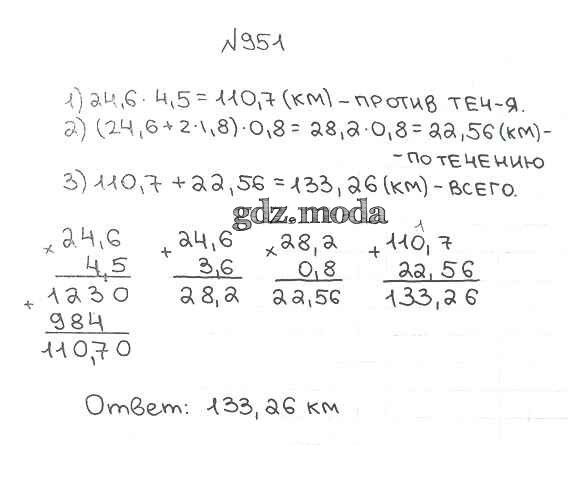 №951
1) 24,6 · 4,5 = 110,7 (км) – против теч-я.
2) (24,6 + 2·1,8) · 0,8 = 28,2 · 0,8 = 22,56 (км) –
– по течению
3) 110,7 + 22,56 = 133,26 (км) – всего.
gdz.moda
× 24,6
4,5
+ 1230
984
110,70
+ 24,6
3,6
28,2
× 28,2
0,8
22,56
1
+ 110,7
22,56
133,26
Ответ: 133,26 км